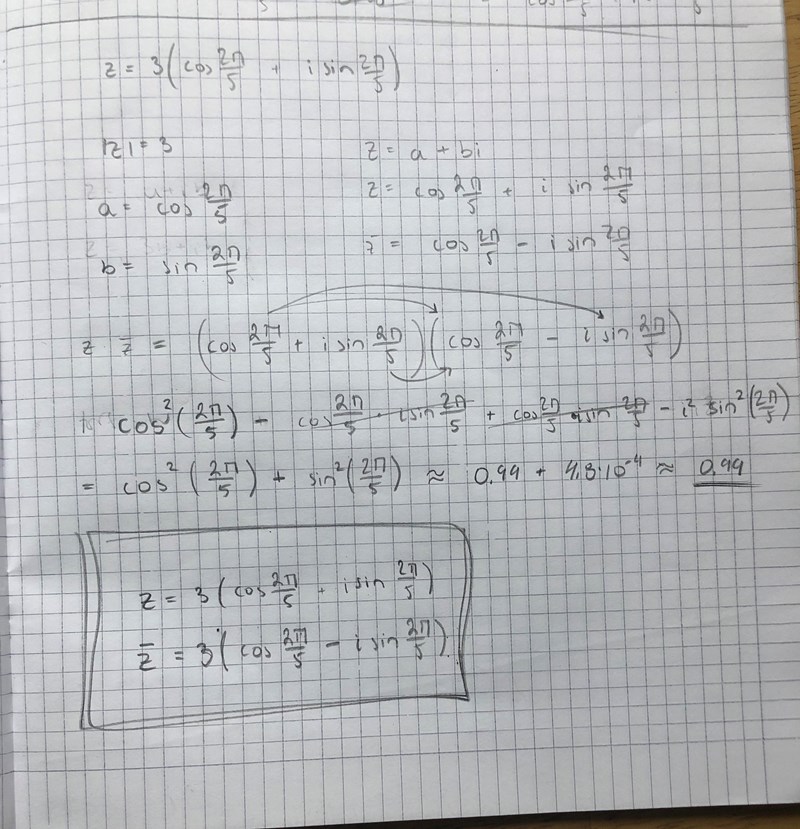 z = 3(cos 2π/5 + i sin 2π/5)
|z| = 3
z = a + bi
a = cos 2π/5
z = cos 2π/5 + i sin 2π/5
b = sin 2π/5
z̄ = cos 2π/5 - i sin 2π/5
z z̄ = (cos 2π/5 + i sin 2π/5)(cos 2π/5 - i sin 2π/5)
cos²(2π/5) - cos 2π/5 · i sin 2π/5 + cos 2π/5 · i sin 2π/5 - i² sin²(2π/5)
= cos²(2π/5) + sin²(2π/5) ≈ 0.99 + 4.8·10⁻⁴ ≈ 0.99
z = 3(cos 2π/5 + i sin 2π/5)
z̄ = 3(cos 2π/5 - i sin 2π/5)